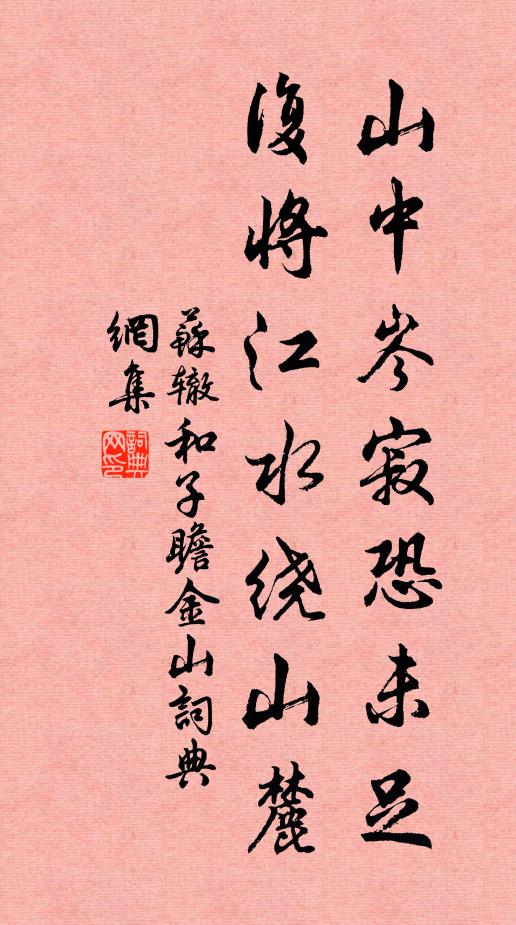 山中岑寂恐未足
復將江水绕山麓
蘇辙和子瞻金山詞典
網集
詞典
网印